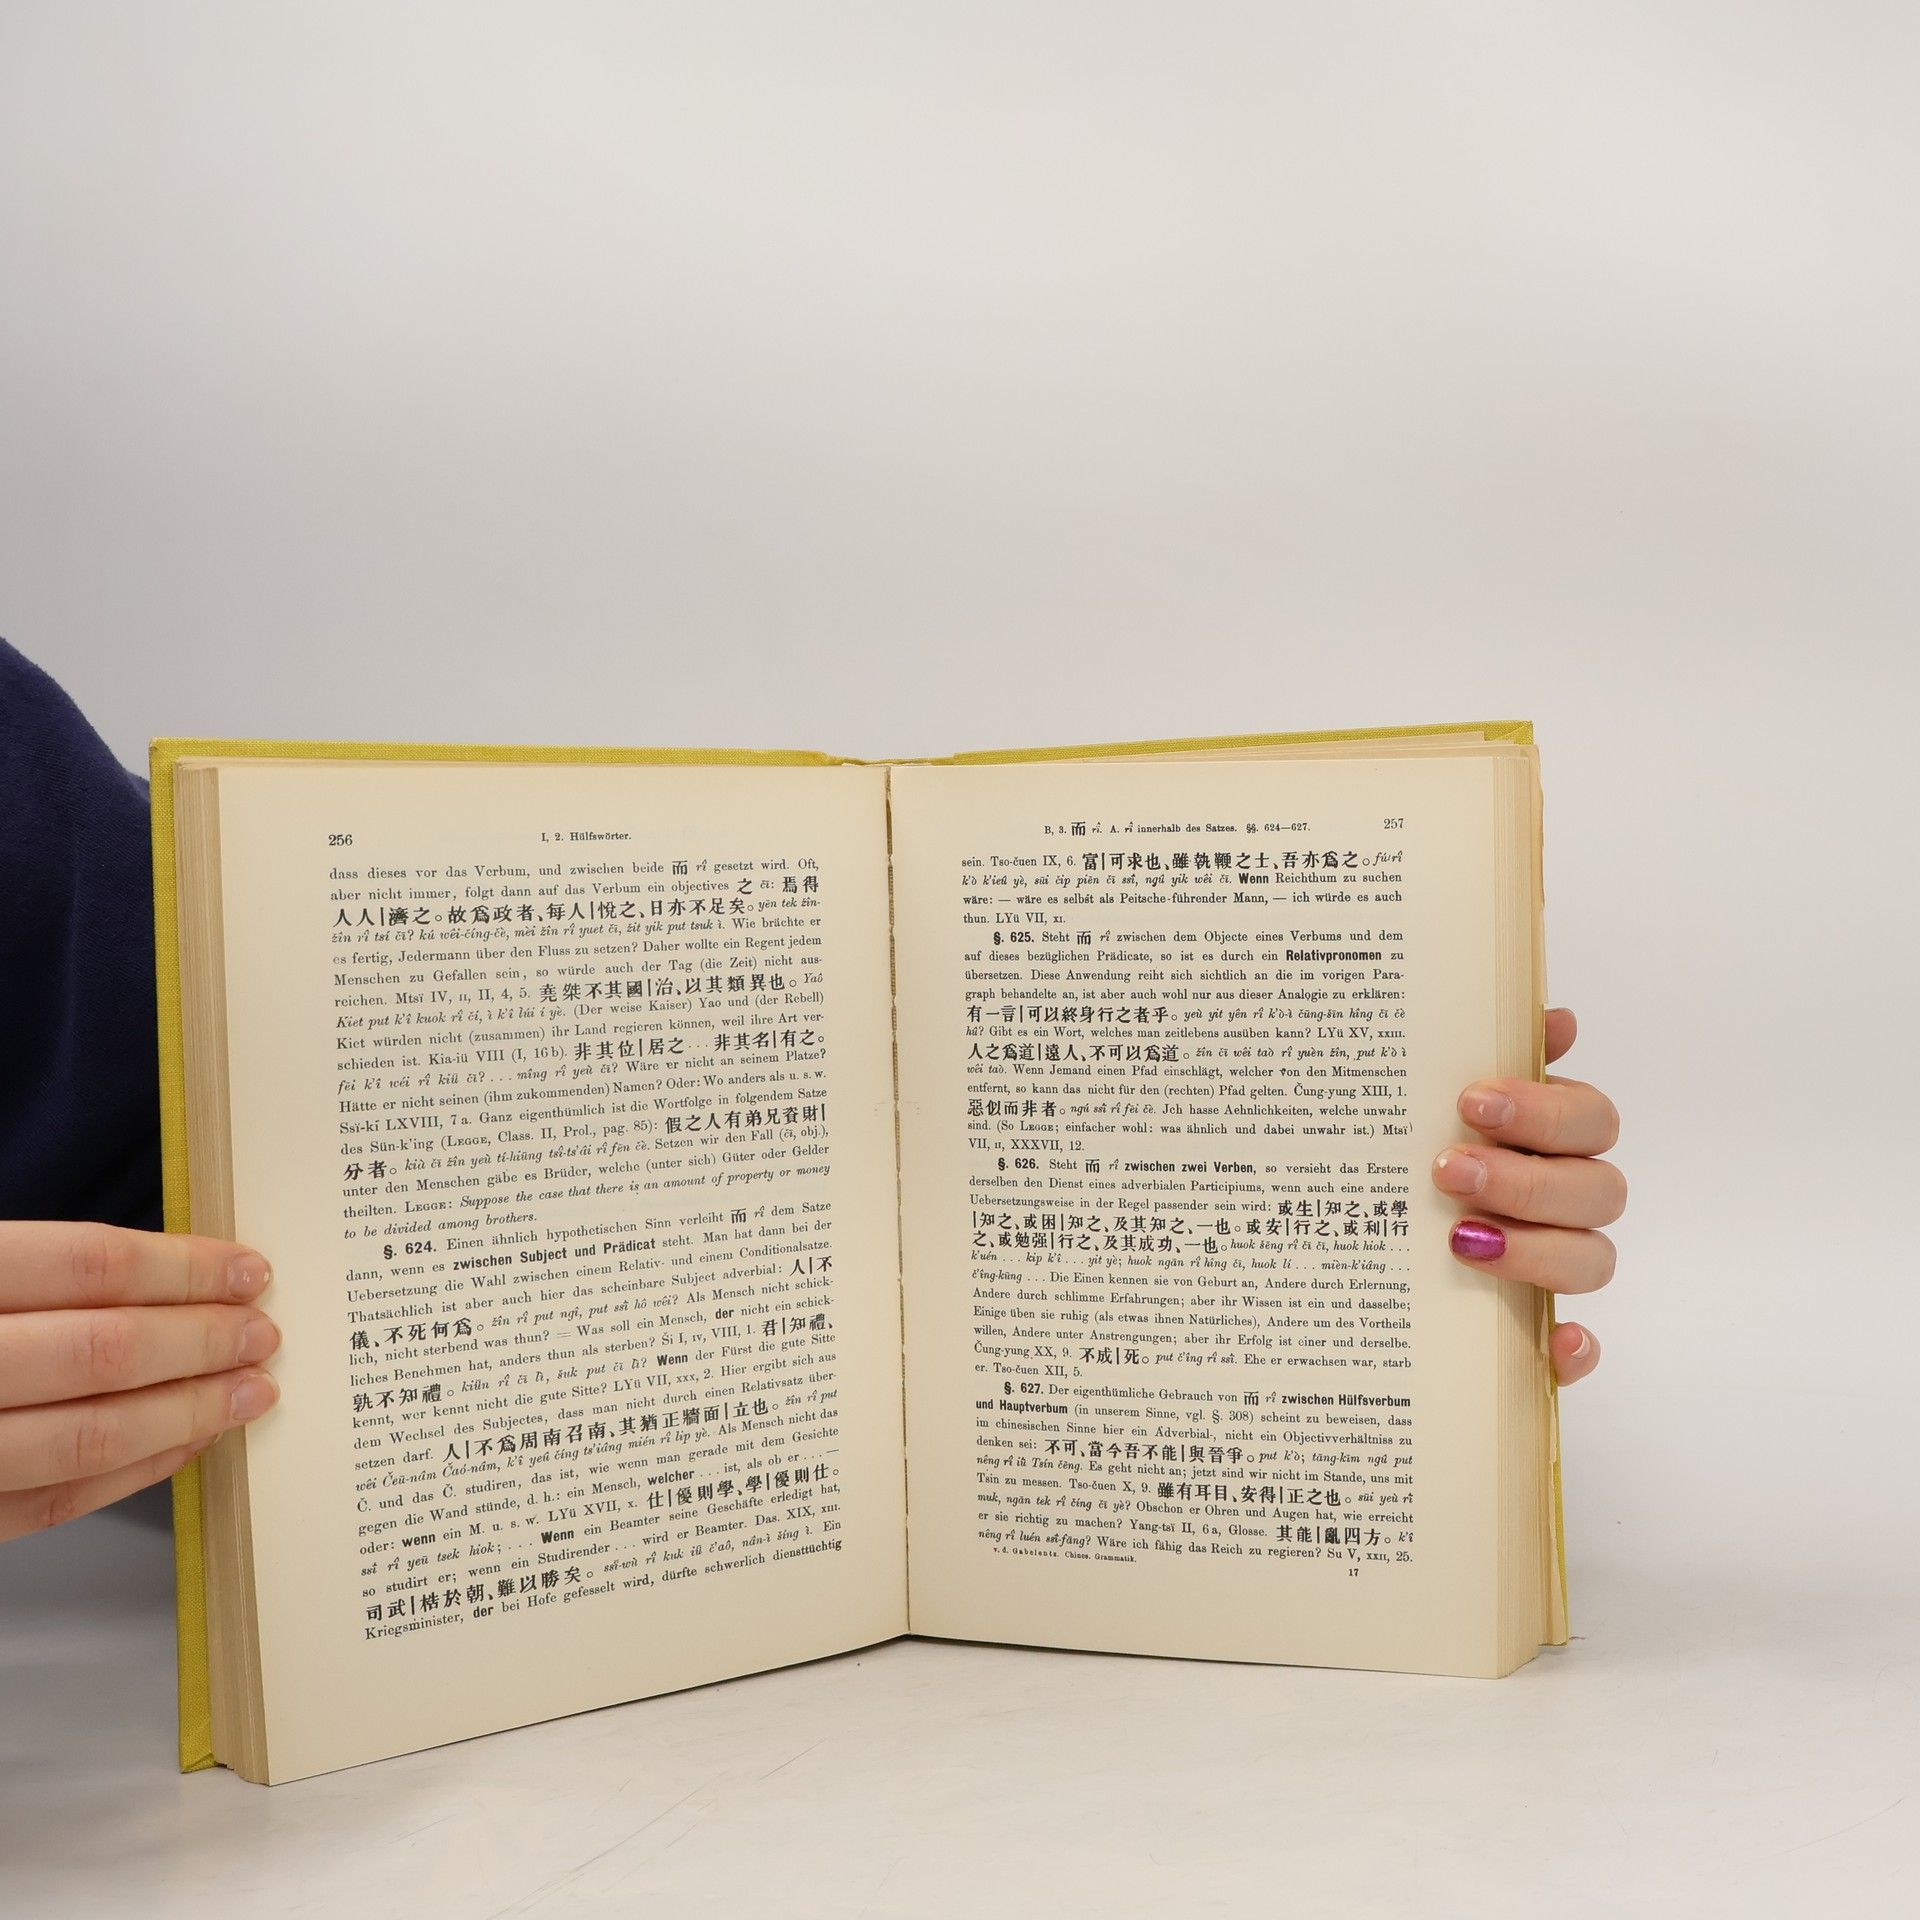 256
I, 2. Hülfswörter.
dass dieses vor das Verbum, und zwischen beide 而 rî gesetzt wird. Oft,
aber nicht immer, folgt dann auf das Verbum ein objectives 之 čī: 焉得
人人|濟之。故爲政者、每人|悅之、日亦不足矣。yēn tek žîn-
žîn rî tsí čī? kú wêi-číng-čè, mèi žîn rî yuet čī, žit yik put tsuk ì. Wie brächte er
es fertig, Jedermann über den Fluss zu setzen? Daher wollte ein Regent jedem
Menschen zu Gefallen sein, so würde auch der Tag (die Zeit) nicht aus-
reichen. Mtsï IV, II, II, 4, 5. 堯桀不其國|治、以其類異也。Yaô
Kiet put k'î kuok rî čí, ì k'î lúi í yè. (Der weise Kaiser) Yao und (der Rebell)
Kiet würden nicht (zusammen) ihr Land regieren können, weil ihre Art ver-
schieden ist. Kia-iü VIII (I, 16 b). 非其位|居之...非其名|有之。
fēi k'î wéi rî kiü čī? ... mîng rî yeù čī? Wäre er nicht an seinem Platze?
Hätte er nicht seinen (ihm zukommenden) Namen? Oder: Wo anders als u. s. w.
Ssï-kí LXVIII, 7 a. Ganz eigenthümlich ist die Wortfolge in folgendem Satze
des Sün-k'ing (LEGGE, Class. II, Prol., pag. 85): 假之人有弟兄資財|
分者。kià čī žîn yeù tí-hiūng tsī-ts'âi rî fēn čè. Setzen wir den Fall (čī, obj.),
unter den Menschen gäbe es Brüder, welche (unter sich) Güter oder Gelder
theilten. LEGGE: Suppose the case that there is an amount of property or money
to be divided among brothers.
§. 624. Einen ähnlich hypothetischen Sinn verleiht 而 rî dem Satze
dann, wenn es zwischen Subject und Prädicat steht. Man hat dann bei der
Uebersetzung die Wahl zwischen einem Relativ- und einem Conditionalsatze.
Thatsächlich ist aber auch hier das scheinbare Subject adverbial: 人|不
儀、不死何爲。žîn rî put ngî, put ssì hô wêi? Als Mensch nicht schick-
lich, nicht sterbend was thun? = Was soll ein Mensch, der nicht ein schick-
liches Benehmen hat, anders thun als sterben? Ši I, IV, VIII, 1. 君|知禮、
孰不知禮。kiün rî čī lì, šuk put čī lì? Wenn der Fürst die gute Sitte
kennt, wer kennt nicht die gute Sitte? LYü VII, XXX, 2. Hier ergibt sich aus
dem Wechsel des Subjectes, dass man nicht durch einen Relativsatz über-
setzen darf. 人|不爲周南召南、其猶正牆面|立也。žîn rî put
wêi Čeū-nâm Čaó-nâm, k'î yeû číng ts'iâng mién rî lip yè. Als Mensch nicht das
Č. und das Č. studiren, das ist, wie wenn man gerade mit dem Gesichte
gegen die Wand stünde, d. h.: ein Mensch, welcher ... ist, als ob er ... —
oder: wenn ein M. u. s. w. LYü XVII, X. 仕|優則學、學|優則仕。
ssí rî yeū tsek hiok; ... Wenn ein Beamter seine Geschäfte erledigt hat,
so studirt er; wenn ein Studirender ... wird er Beamter. Das. XIX, XIII.
司武|梏於朝、難以勝矣。ssī-wù rî kuk iü č'aô, nân-ì šíng ì. Ein
Kriegsminister, der bei Hofe gefesselt wird, dürfte schwerlich diensttüchtig
B, 3. 而 rî. A. rî innerhalb des Satzes. §§. 624—627.
257
sein. Tso-čuen IX, 6. 富|可求也、雖執鞭之士、吾亦爲之。fú rî
k'ò k'ieû yè, süi čip piēn čī ssí, ngú yik wêi čī. Wenn Reichthum zu suchen
wäre: — wäre es selbst als Peitsche-führender Mann, — ich würde es auch
thun. LYü VII, XI.
§. 625. Steht 而 rî zwischen dem Objecte eines Verbums und dem
auf dieses bezüglichen Prädicate, so ist es durch ein Relativpronomen zu
übersetzen. Diese Anwendung reiht sich sichtlich an die im vorigen Para-
graph behandelte an, ist aber auch wohl nur aus dieser Analogie zu erklären:
有一言|可以終身行之者乎。yeù yit yên rî k'ò-ì čūng-šīn hîng čī čè
hû? Gibt es ein Wort, welches man zeitlebens ausüben kann? LYü XV, XXIII.
人之爲道|遠人、不可以爲道。žîn čī wêi taò rî yuèn žîn, put k'ò ì
wêi taò. Wenn Jemand einen Pfad einschlägt, welcher von den Mitmenschen
entfernt, so kann das nicht für den (rechten) Pfad gelten. Čung-yung XIII, 1.
惡似而非者。ngú ssí rî fēi čè. Jch hasse Aehnlichkeiten, welche unwahr
sind. (So LEGGE; einfacher wohl: was ähnlich und dabei unwahr ist.) Mtsï
VII, II, XXXVII, 12.
§. 626. Steht 而 rî zwischen zwei Verben, so versieht das Erstere
derselben den Dienst eines adverbialen Participiums, wenn auch eine andere
Uebersetzungsweise in der Regel passender sein wird: 或生|知之、或學
|知之、或困|知之、及其知之、一也。或安|行之、或利|行
之、或勉强|行之、及其成功、一也。huok šēng rî čī čī, huok hiok ...
k'uén ... kip k'î ... yit yè; huok ngān rî hîng čī, huok lí ... mièn-k'iâng ...
č'îng-kūng ... Die Einen kennen sie von Geburt an, Andere durch Erlernung,
Andere durch schlimme Erfahrungen; aber ihr Wissen ist ein und dasselbe;
Einige üben sie ruhig (als etwas ihnen Natürliches), Andere um des Vortheils
willen, Andere unter Anstrengungen; aber ihr Erfolg ist einer und derselbe.
Čung-yung XX, 9. 不成|死。put č'îng rî ssì. Ehe er erwachsen war, starb
er. Tso-čuen XII, 5.
§. 627. Der eigenthümliche Gebrauch von 而 rî zwischen Hülfsverbum
und Hauptverbum (in unserem Sinne, vgl. §. 308) scheint zu beweisen, dass
im chinesischen Sinne hier ein Adverbial-, nicht ein Objectivverhältniss zu
denken sei: 不可、當今吾不能|與晉爭。put k'ò; tāng-kīm ngû put
nêng rî iü Tsín čēng. Es geht nicht an; jetzt sind wir nicht im Stande, uns mit
Tsin zu messen. Tso-čuen X, 9. 雖有耳目、安得|正之也。süi yeù rì
muk, ngān tek rî číng čī yè? Obschon er Ohren und Augen hat, wie erreicht
er sie richtig zu machen? Yang-tsï II, 6 a, Glosse. 其能|亂四方。k'î
nêng rî luén ssí-fāng? Wäre ich fähig das Reich zu regieren? Su V, XXII, 25.
v. d. Gabelentz. Chines. Grammatik.
17